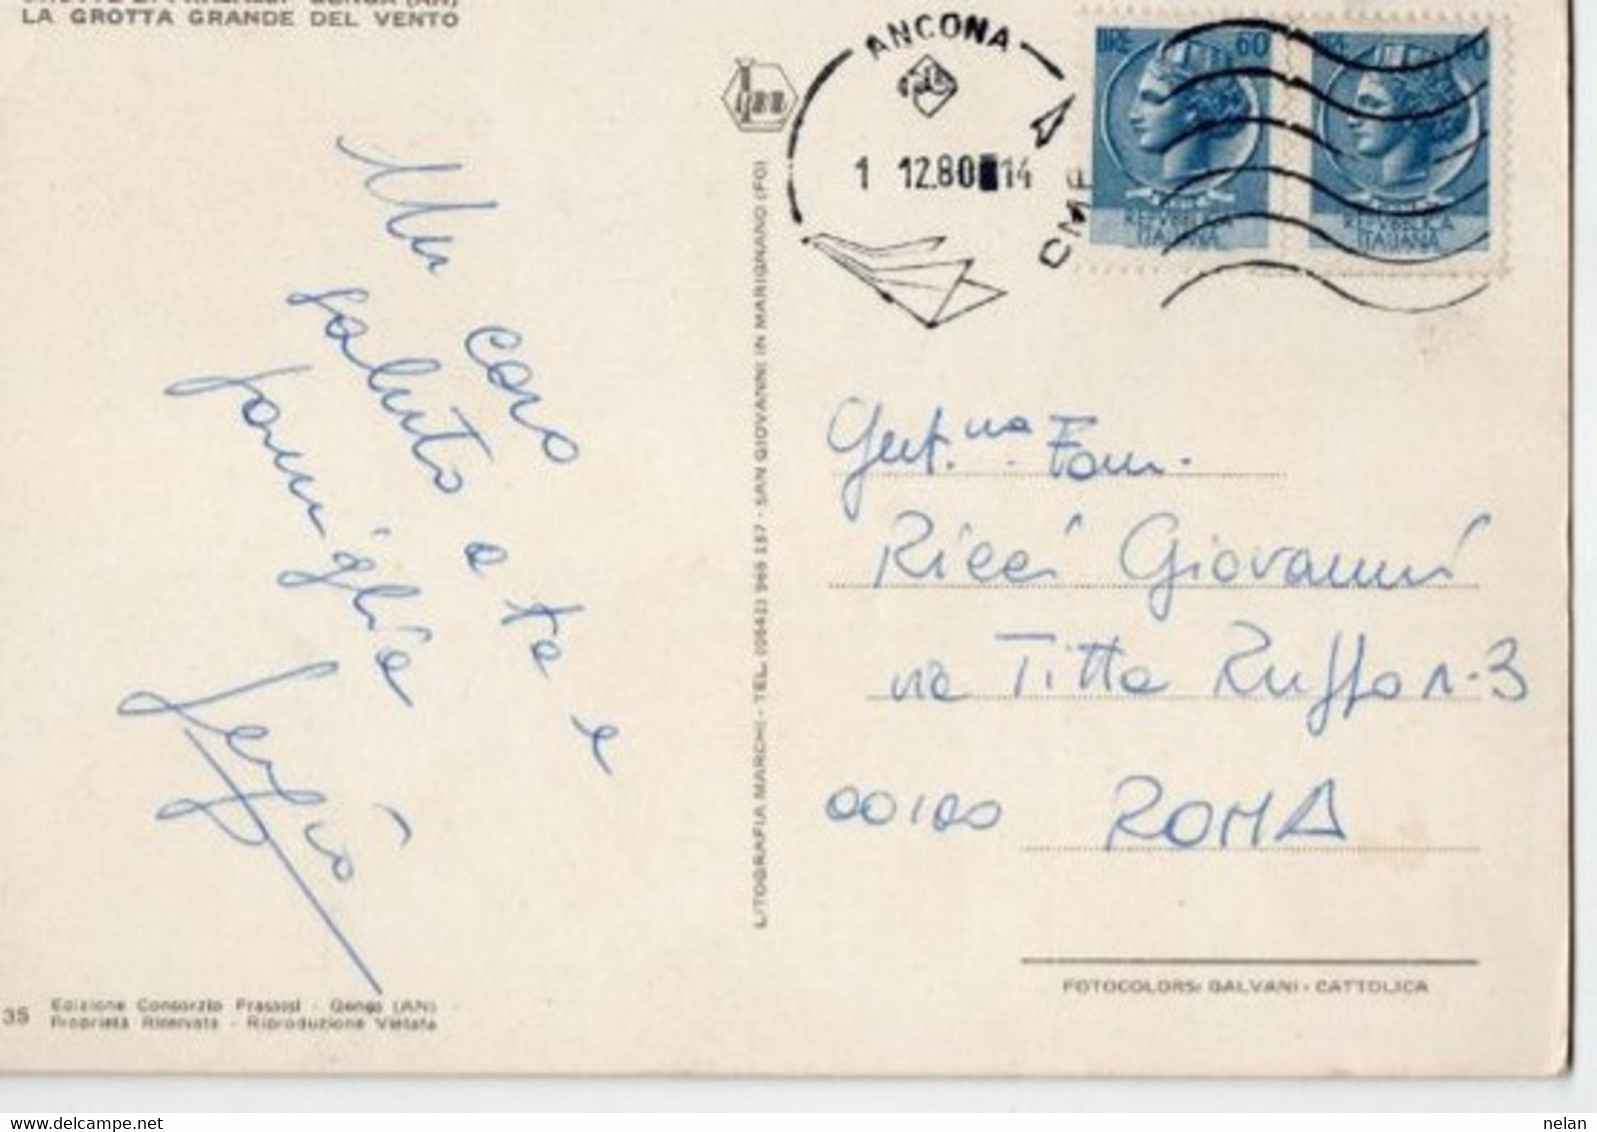 LA GROTTA GRANDE DEL VENTO
Un caro
saluto a te e
famiglia
Sergio
35
Edizione Consorzio Frasassi - Genga (AN)
Proprietà Riservata - Riproduzione Vietata
LITOGRAFIA MARCHI - TEL. (0541) 965 157 - SAN GIOVANNI IN MARIGNANO (FO)
ANCONA
1 12.80 14
CMP
LIRE 60
REPVBBLICA
ITALIANA
60
REPVBBLICA
ITALIANA
Gent.ma Fam.
Ricci Giovanni
via Titta Ruffo n-3
00100 ROMA
FOTOCOLORS: GALVANI - CATTOLICA
nelan